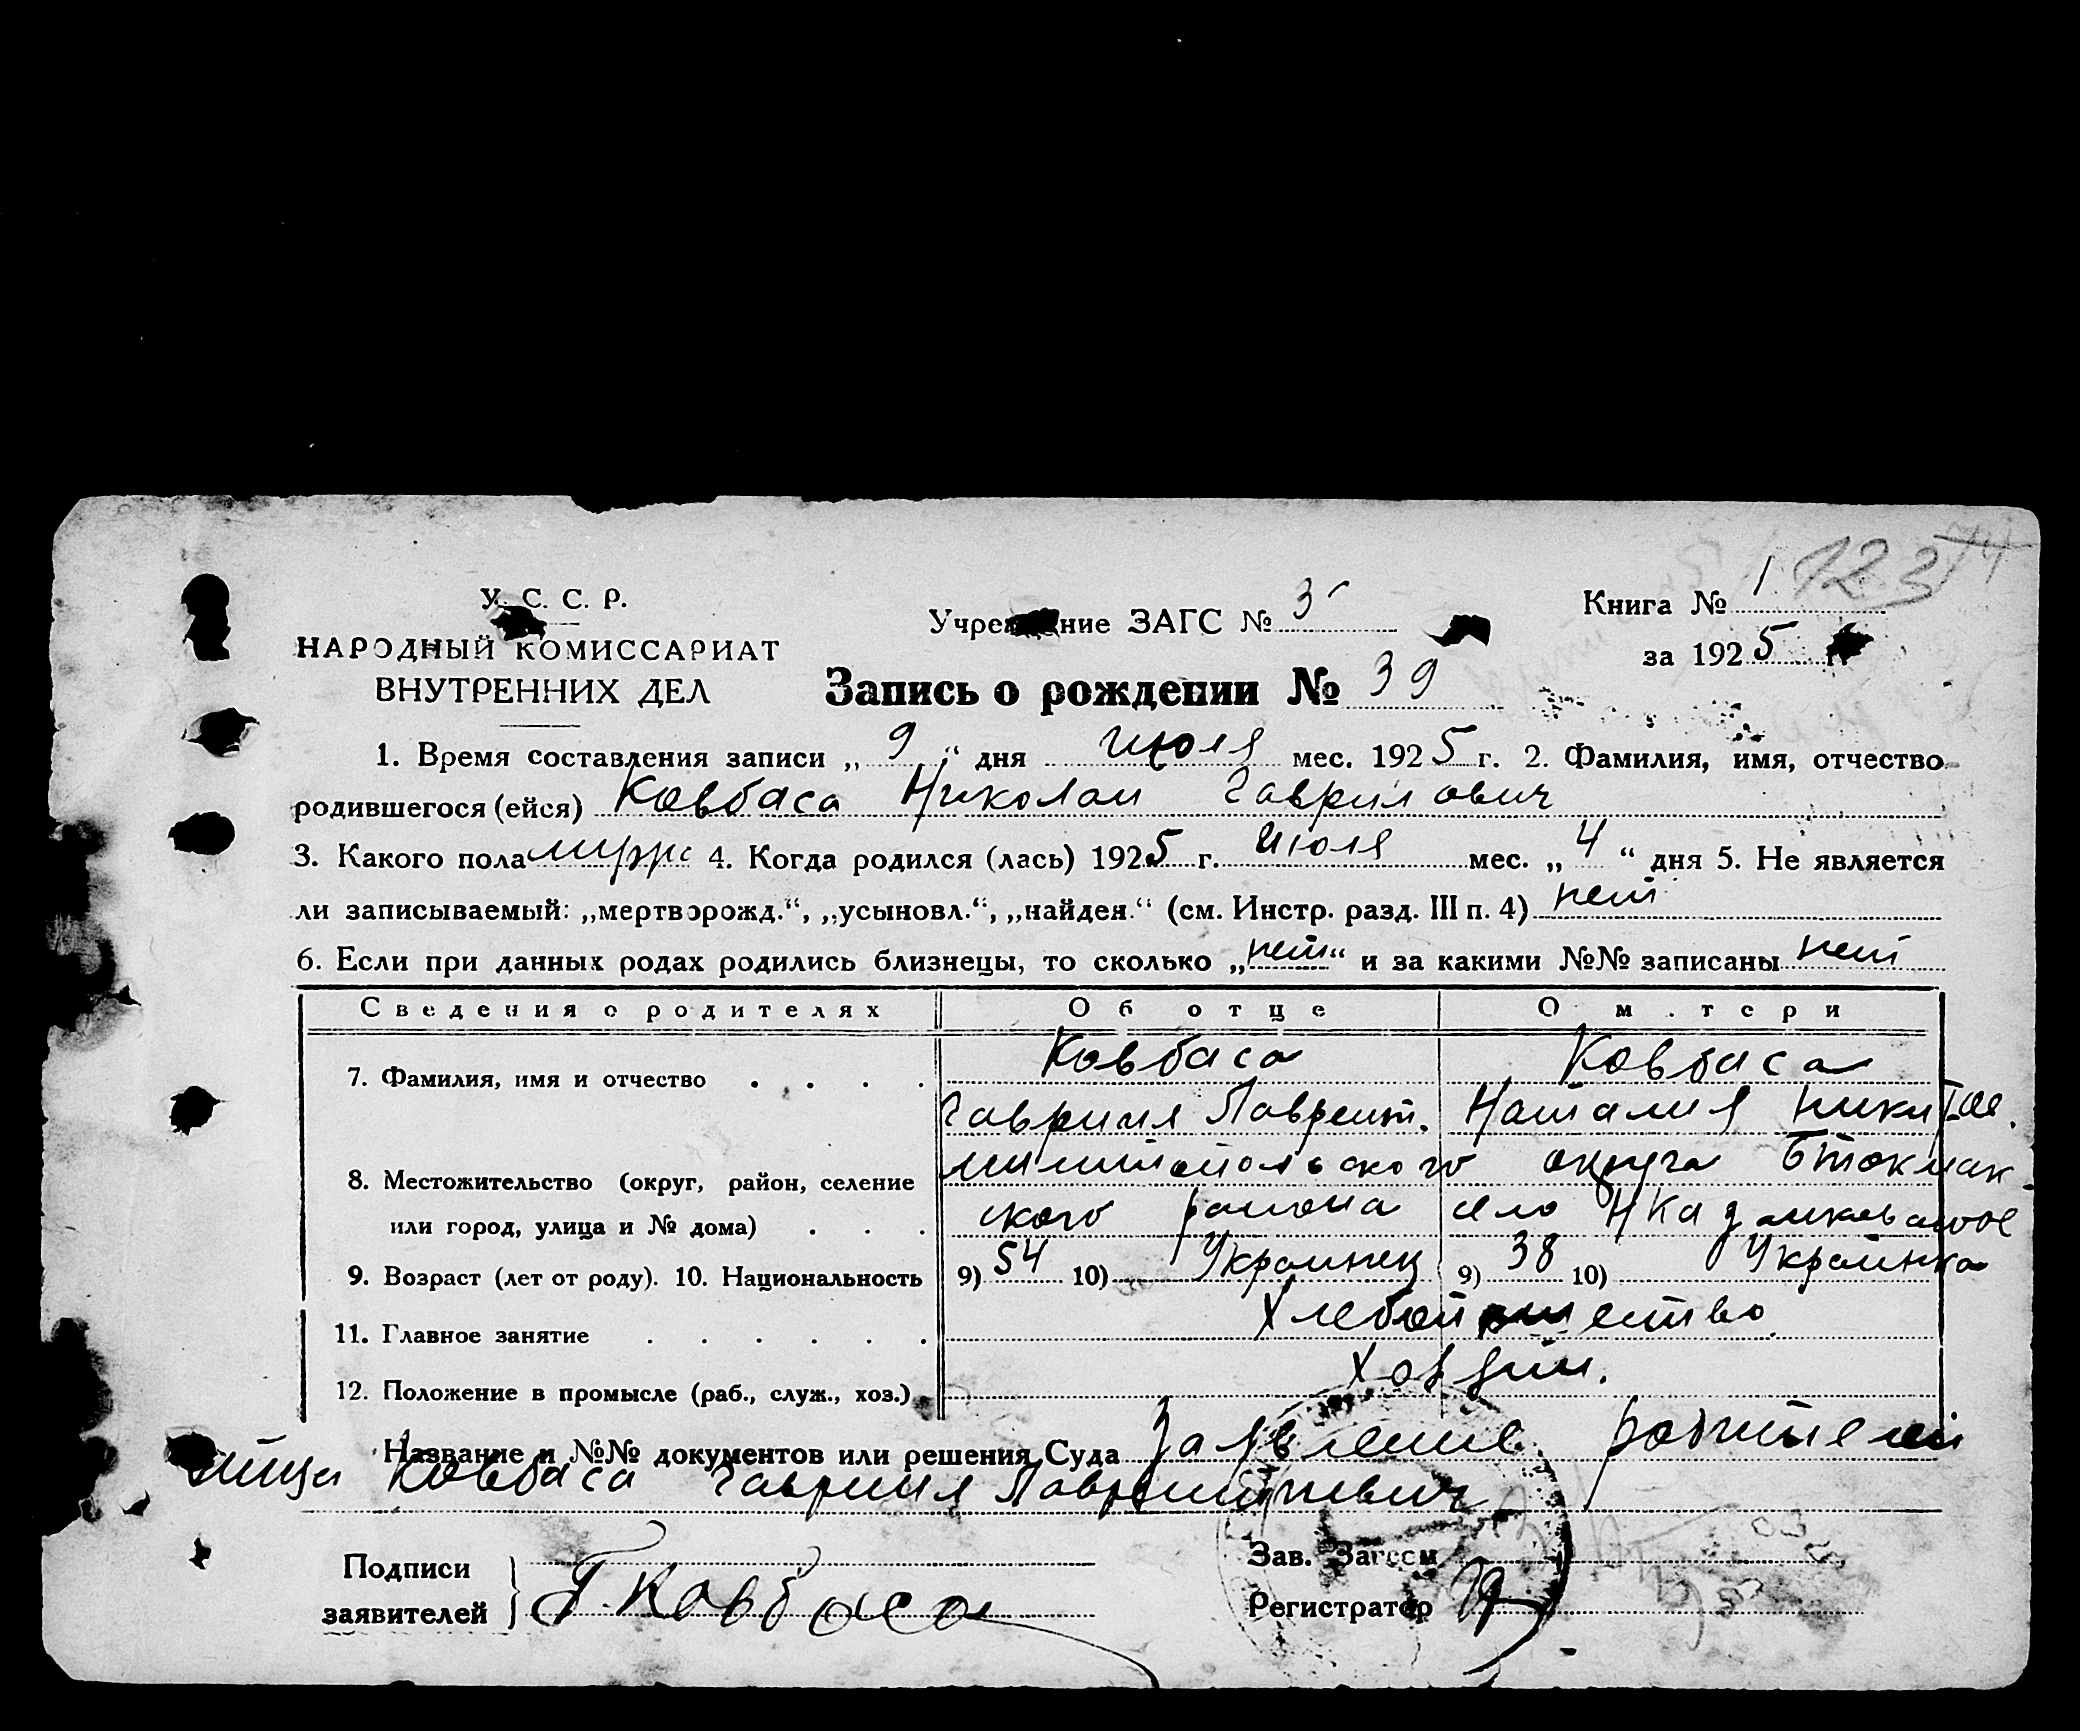 У. С. С. Р.
НАРОДНЫЙ КОМИССАРИАТ
ВНУТРЕННИХ ДЕЛ
Учре ние ЗАГС № 3
Книга № 1 123
за 1925
Запись о рождении № 39
1. Время составления записи „ 9 “ дня июля мес. 1925 г. 2. Фамилия, имя, отчество
родившегося (ейся) Ковбаса Николаи Гаврилович
3. Какого пола 4. Когда родился (лась) 1925 г. Июля мес. „ 4 “ дня 5. Не является
ли записываемый: „мертворожд.“, „усыновл.“, „найден.“ (см. Инстр. разд. III п. 4) нет
6. Если при данных родах родились близнецы, то сколько „нет“ и за какими №№ записаны нет
Сведения о родителях Об отце О м тери
7. Фамилия, имя и отчество . . . . Ковбаса Ковбаса
Гавриил Лаврент. Наталия Никитов.
8. Местожительство (округ, район, селение округа Бтокмак
или город, улица и № дома) . . . ского раиона село
9. Возраст (лет от роду). 10. Национальность 9) 54 10) Украинец 9) 38 10) Украинка
11. Главное занятие . . . . . .
12. Положение в промысле (раб., служ., хоз.)
Название и №№ документов или решения Суда Заявление родителеи
отца Ковбаса Гавриил
Подписи
заявителей } Г. Ковбаса
Зав. Загсом
Регистратор